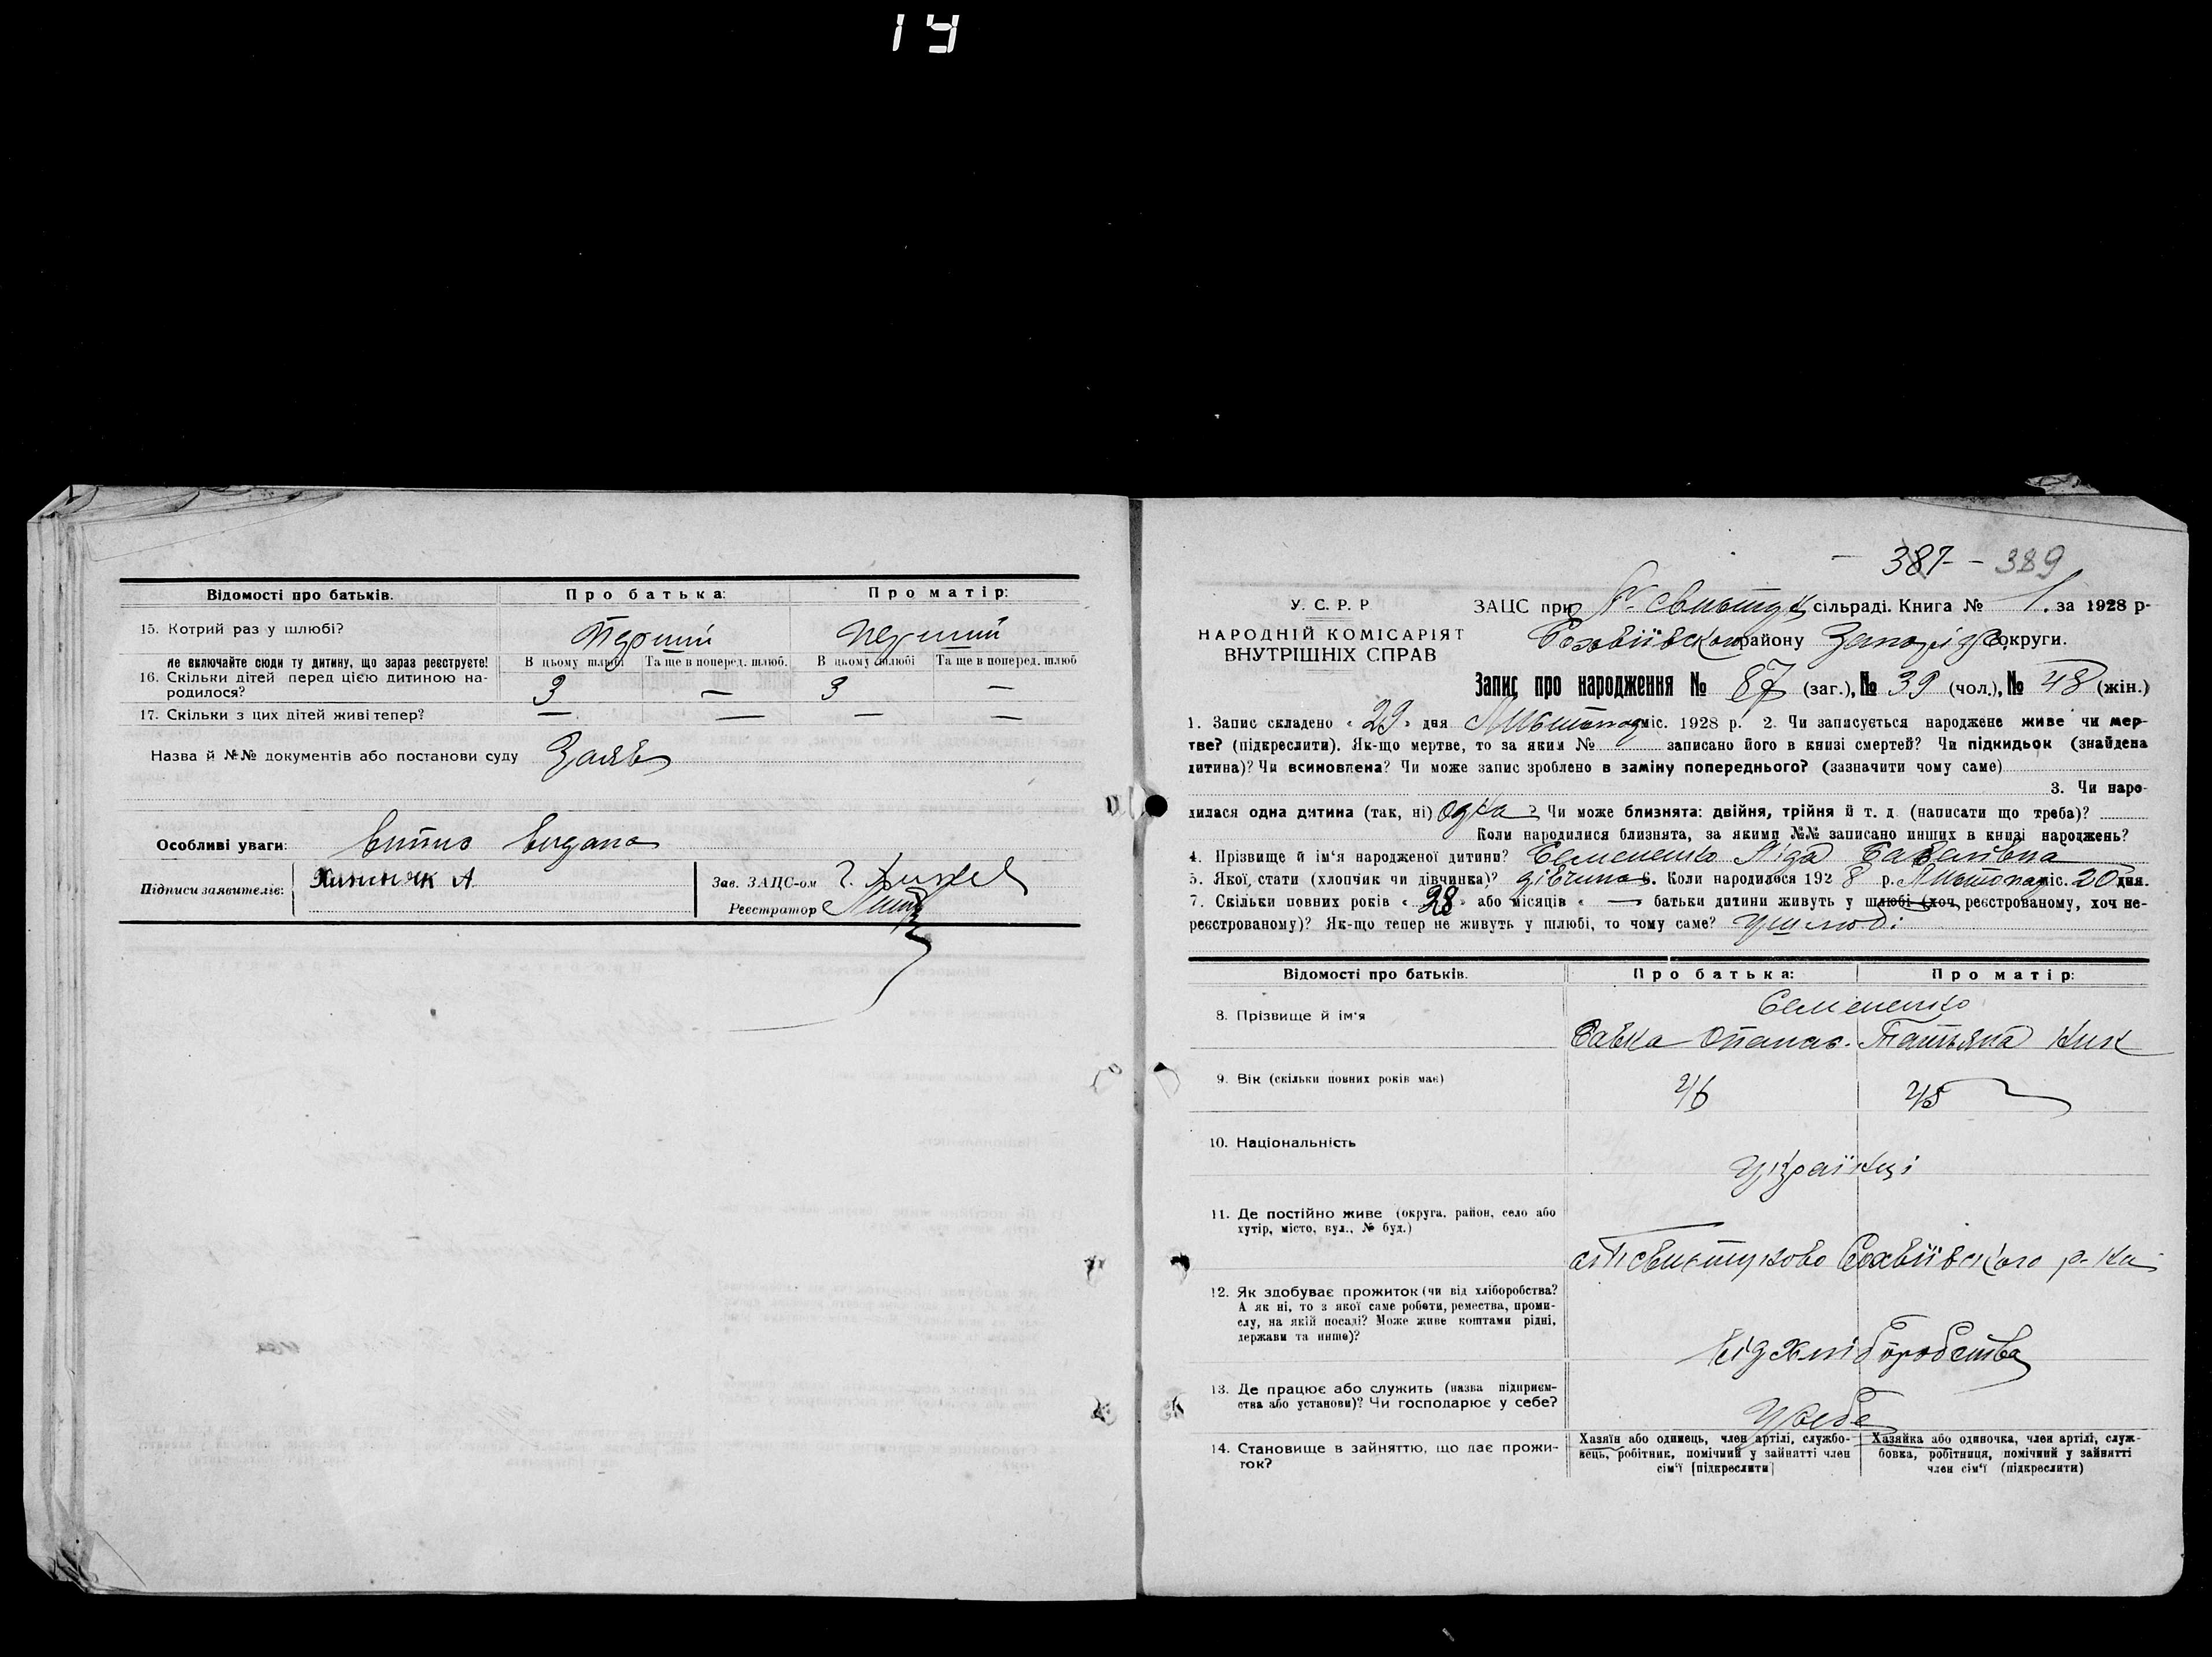 19
Відомості про батьків. Про батька: Про матір:
15. Котрий раз у шлюбі? Перший Перший
не включайте сюди ту дитину, що зараз реєструєте! В цьому шлюбі Та ще в поперед. шлюб. В цьому шлюбі Та ще в поперед. шлюб
16. Скільки дітей перед цією дитиною на-
родилося? 3 — 3 —
17. Скільки з цих дітей живі тепер? — — — —
Назва й №№ документів або постанови суду Заява
Особливі уваги: видано
Підписи заявителів: А Зав. ЗАЦС-ом
Реєстратор
387 - 389
У. С. Р. Р
НАРОДНІЙ КОМІСАРІЯТ
ВНУТРІШНІХ СПРАВ
ЗАЦС при сільраді. Книга № 1. за 1928 р-
району округи.
Запис про народження № 87 (заг.), № 39 (чол.), № 48 (жін.)
1. Запис складено « 29 » дня Листопад міс. 1928 р. 2. Чи записується народжене живе чи мер-
тве? (підкреслити). Як-що мертве, то за яким № записано його в книзі смертей? Чи підкидьок (знайдена
дитина)? Чи всиновлена? Чи може запис зроблено в заміну попереднього? (зазначити чому саме)
3. Чи наро-
дилася одна дитина (так, ні) одна ? Чи може близнята: двійня, трійня й т. д. (написати що треба)?
Коли народилися близнята, за якими №№ записано инших в книзі народжень?
4. Прізвище й ім'я народженої дитини? Семененко Ліда Савелівна
5. Якої, стати (хлопчик чи дівчинка)? дівчина 6. Коли народилося 192 8 р. Листопад міс. 20 дня.
7. Скільки повних років « 28 » або місяців « — » батьки дитини живуть у шлюбі (хоч реєстрованому, хоч не-
реєстрованому)? Як-що тепер не живуть у шлюбі, то чому саме? у шлюбі
Відомості про батьків. Про батька: Про матір:
Семененко
8. Прізвище й ім'я Савка Опанас. Татьяна Ник
9. Вік (скільки повних років має) 46 45
10. Національність
Українці
11. Де постійно живе (округа, район, село або
хутір, місто, вул., № буд.)
Софіївского р-на
12. Як здобуває прожиток (чи від хліборобства?
А як ні, то з якої саме роботи, ремества, проми-
слу, на якій посаді? Може живе коштами рідні,
держави та инше)?
Від хліборобства
13. Де працює або служить (назва підприєм-
ства або установи)? Чи господарює у себе?
У себе
14. Становище в зайняттю, що дає прожи-
ток?
Хазяїн або одинець, член артілі, службо-
вець, робітник, помічний у зайнятті член
сім'ї (підкреслити)
Хазяйка або одиночка, член артілі, служ-
бовка, робітниця, помічний у зайнятті
член сім'ї (підкреслити)